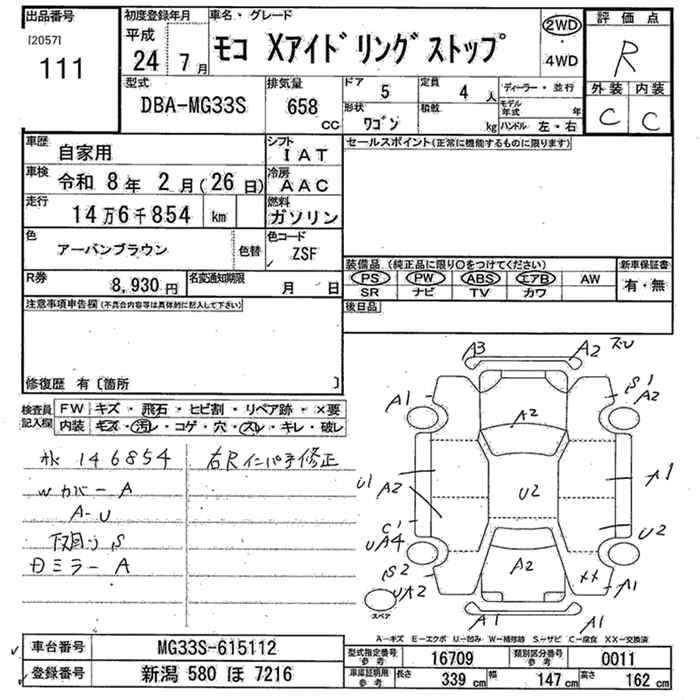 出品番号
[2057]
111
初度登録年月
平成
24 7月
車名・グレード
モコ Xアイドリングストップ
2WD
・
4WD
評価点
R
外装 内装
C C
型式
DBA-MG33S
排気量
658
CC
ドア
5
定員
4 人
形状
ワゴン
積載
kg
ディーラー・並行
モデル年式 年
ハンドル 左・右
車歴
自家用
シフト
IAT
車検
令和 8年 2月(26日)
冷房
AAC
走行
14万6千854 km
燃料
ガソリン
色
アーバンブラウン
色替
色コード
ZSF
R券
8,930円
名変通知期限
月 日
セールスポイント(正常に機能するものに限ります)
装備品(純正品に限り○をつけてください)
新車保証書
PS PW ABS エアB AW
有・無
SR ナビ TV カワ
後日品
注意事項申告欄(不具合内容等は具体的に記入して下さい)
修復歴 有〔箇所 〕
検査員
記入欄
FW キズ・飛石・ヒビ割・リペア跡・×要
内装 キズ・汚レ・コゲ・穴・スレ・キレ・破レ
水 146854
右Rインパチ修正
Wカバー A
A-U
下廻り S
Dミラー A
A3
A2
A1
S1
A2
A2
U1
A2
U2
A1
C1
U2
UA4
S2
UA2
A2
××
A1
A1
A1
スペア
A-キズ E-エクボ U-凹み W-補修跡 S-サビ C-腐食 XX-交換済
車台番号
MG33S-615112
登録番号
新潟 580 ほ 7216
型式指定番号
参考
16709
類別区分番号
参考
0011
車庫証明用
参考
長さ 339 cm 幅 147 cm 高さ 162 cm